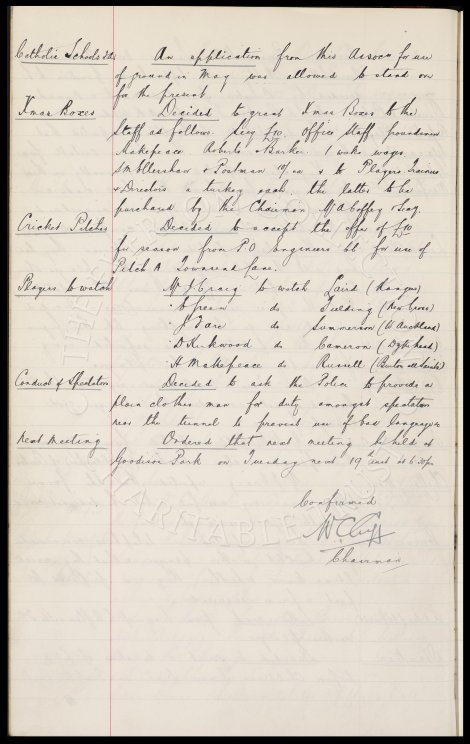 Catholic Schools An application from this Assocn for use
of ground in May was allowed to stand over
for the present
Xmas Boxes Decided to grant Xmas Boxes to the
Staff as follows. Secy £10. Office Staff, groundsmen
Makepeace, Roberts & Barker, 1 weeks wages
Smollershaw & Postman 10/- ea & to Players, Trainers
& Directors a turkey each, the latter to be
purchased by the Chairman, Mr A Coffey & Secy.
Cricket Pitches Decided to accept the offer of £40
for season from P.O Engineers' CC for use of
Pitch A Townsend Lane.
Players to watch Mr J Craig to watch Laird (Rangers)
A Green do Fielding (New Cross)
J Fare do Summerson (W Auckland)
D Kirkwood do Cameron (Dykehead)
H Makepeace do Russell
Conduct of Spectators Decided to ask the Police to provide a
plain clothes man for duty amongst spectators
near the tunnel to prevent use of bad language
Next Meeting Ordered that next meeting be held at
Goodison Park on Tuesday next 19th inst at 6.30pm
Confirmed
W C Cuff
Chairman
THE EVERTON
CHARITABLE